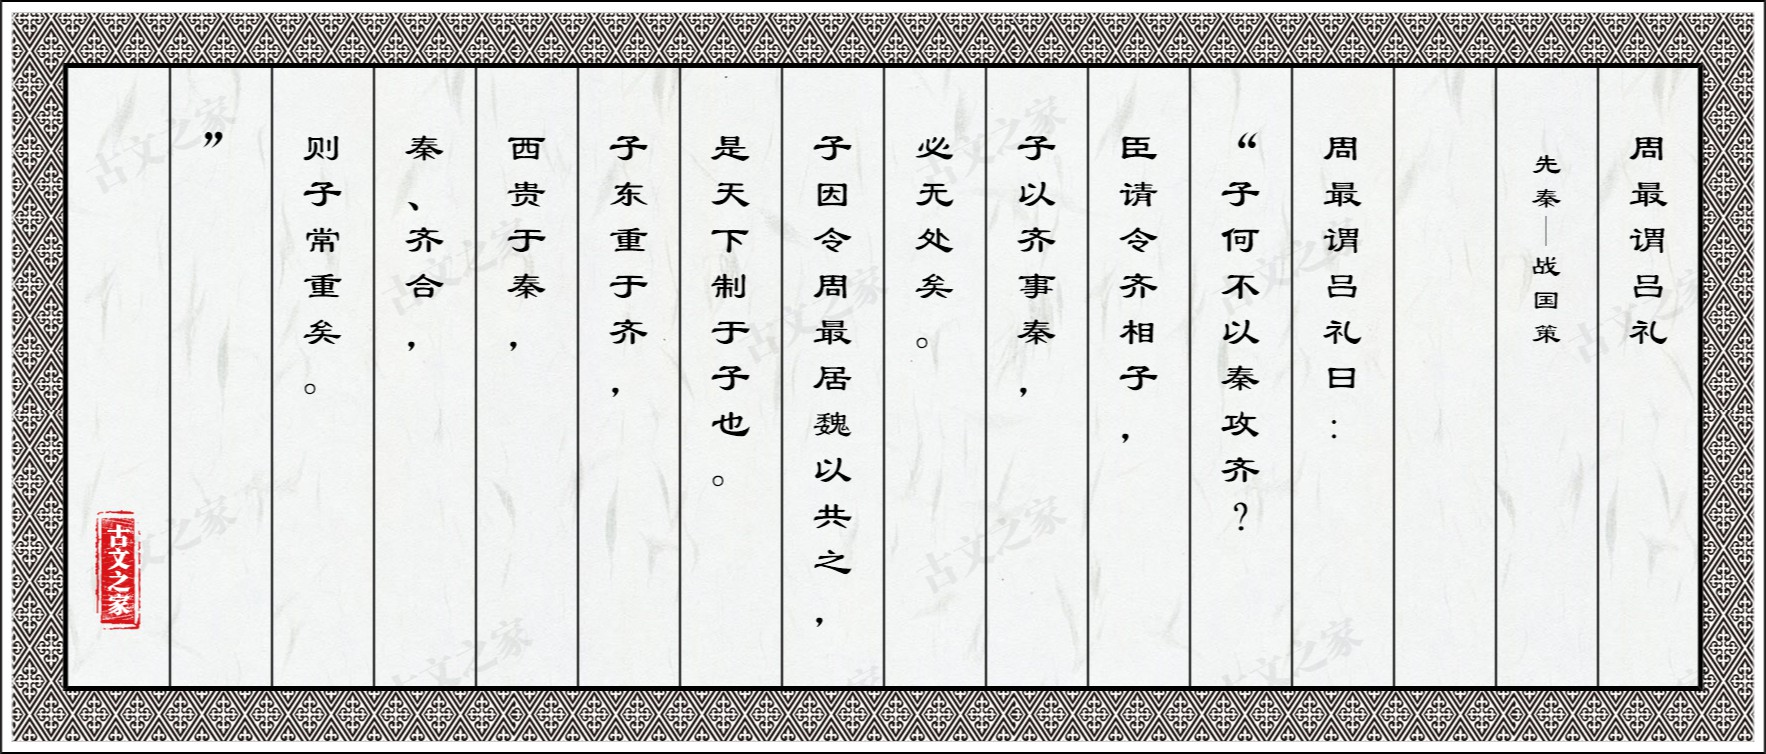 周最谓吕礼
先秦—战国策
周最谓吕礼曰：
“子何不以秦攻齐？
臣请令齐相子，
子以齐事秦，
必无处矣。
子因令周最居魏以共之，
是天下制于子也。
子东重于齐，
西贵于秦，
秦、齐合，
则子常重矣。
”
古文之家